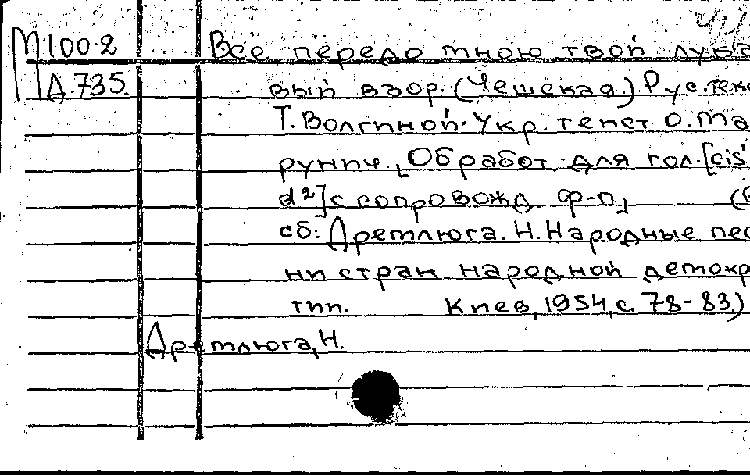 М100.2 Все передо мною твой лука
Д.735. вый взор. (Чешская.) Рус. текс
Т. Волгиной. Укр. текст О. Ма
рунич. [Обработ. для гол. [cis'
d²] с сопровожд. ф-п.]
сб: Дремлюга. Н. Народные пес
ни стран народной демокр
тии. Киев, 1954, с. 78-83)
Дремлюга, Н.